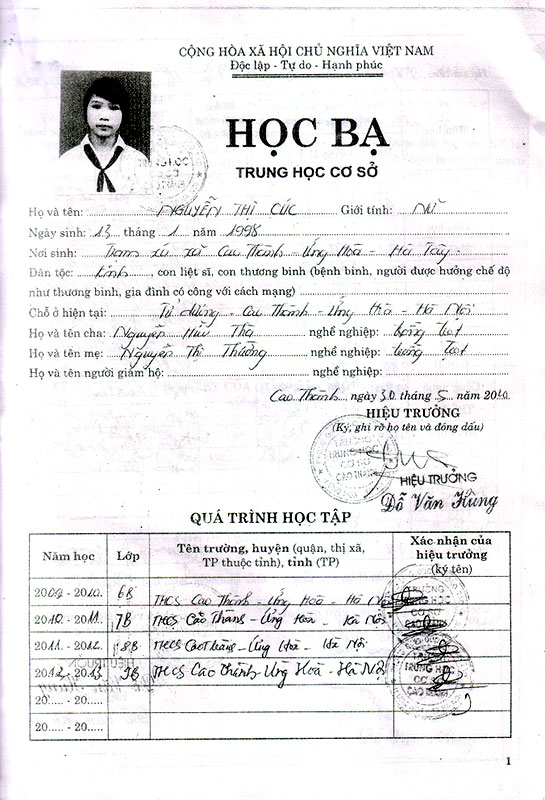 CỘNG HÒA XÃ HỘI CHỦ NGHĨA VIỆT NAM
Độc lập - Tự do - Hạnh phúc
HỌC BẠ
TRUNG HỌC CƠ SỞ
Họ và tên: NGUYỄN THỊ CÚC Giới tính: Nữ
Ngày sinh: 13 tháng 1 năm 1998
Nơi sinh: Trạm xá xã Cao Thành - Ứng Hoà - Hà Tây
Dân tộc: Kinh, con liệt sĩ, con thương binh (bệnh binh, người được hưởng chế độ
như thương binh, gia đình có công với cách mạng)
Chỗ ở hiện tại: Tử Dương - Cao Thành - Ứng Hoà - Hà Nội
Họ và tên cha: Nguyễn Hữu nghề nghiệp:
Họ và tên mẹ: Nguyễn Thị Thưởng nghề nghiệp:
Họ và tên người giám hộ: nghề nghiệp:
Cao Thành, ngày 30 tháng 5 năm 2010
HIỆU TRƯỞNG
(Ký, ghi rõ họ tên và đóng dấu)
TRUNG HỌC
CƠ SỞ
CAO THÀNH
HIỆU TRƯỞNG
Đỗ Văn Hùng
QUÁ TRÌNH HỌC TẬP
Năm học Lớp Tên trường, huyện (quận, thị xã, TP thuộc tỉnh), tỉnh (TP) Xác nhận của hiệu trưởng (ký tên)
2009 - 2010 6B THCS Cao Thành - Ứng Hoà - Hà Nội
2010 - 2011 7B THCS Cao Thành - Ứng Hoà - Hà Nội
2011 - 2012 8B THCS Cao Thành - Ứng Hoà - Hà Nội
2012 - 2013 9B THCS Cao Thành Ứng Hoà - Hà Nội
20..... - 20.....
20..... - 20.....
1